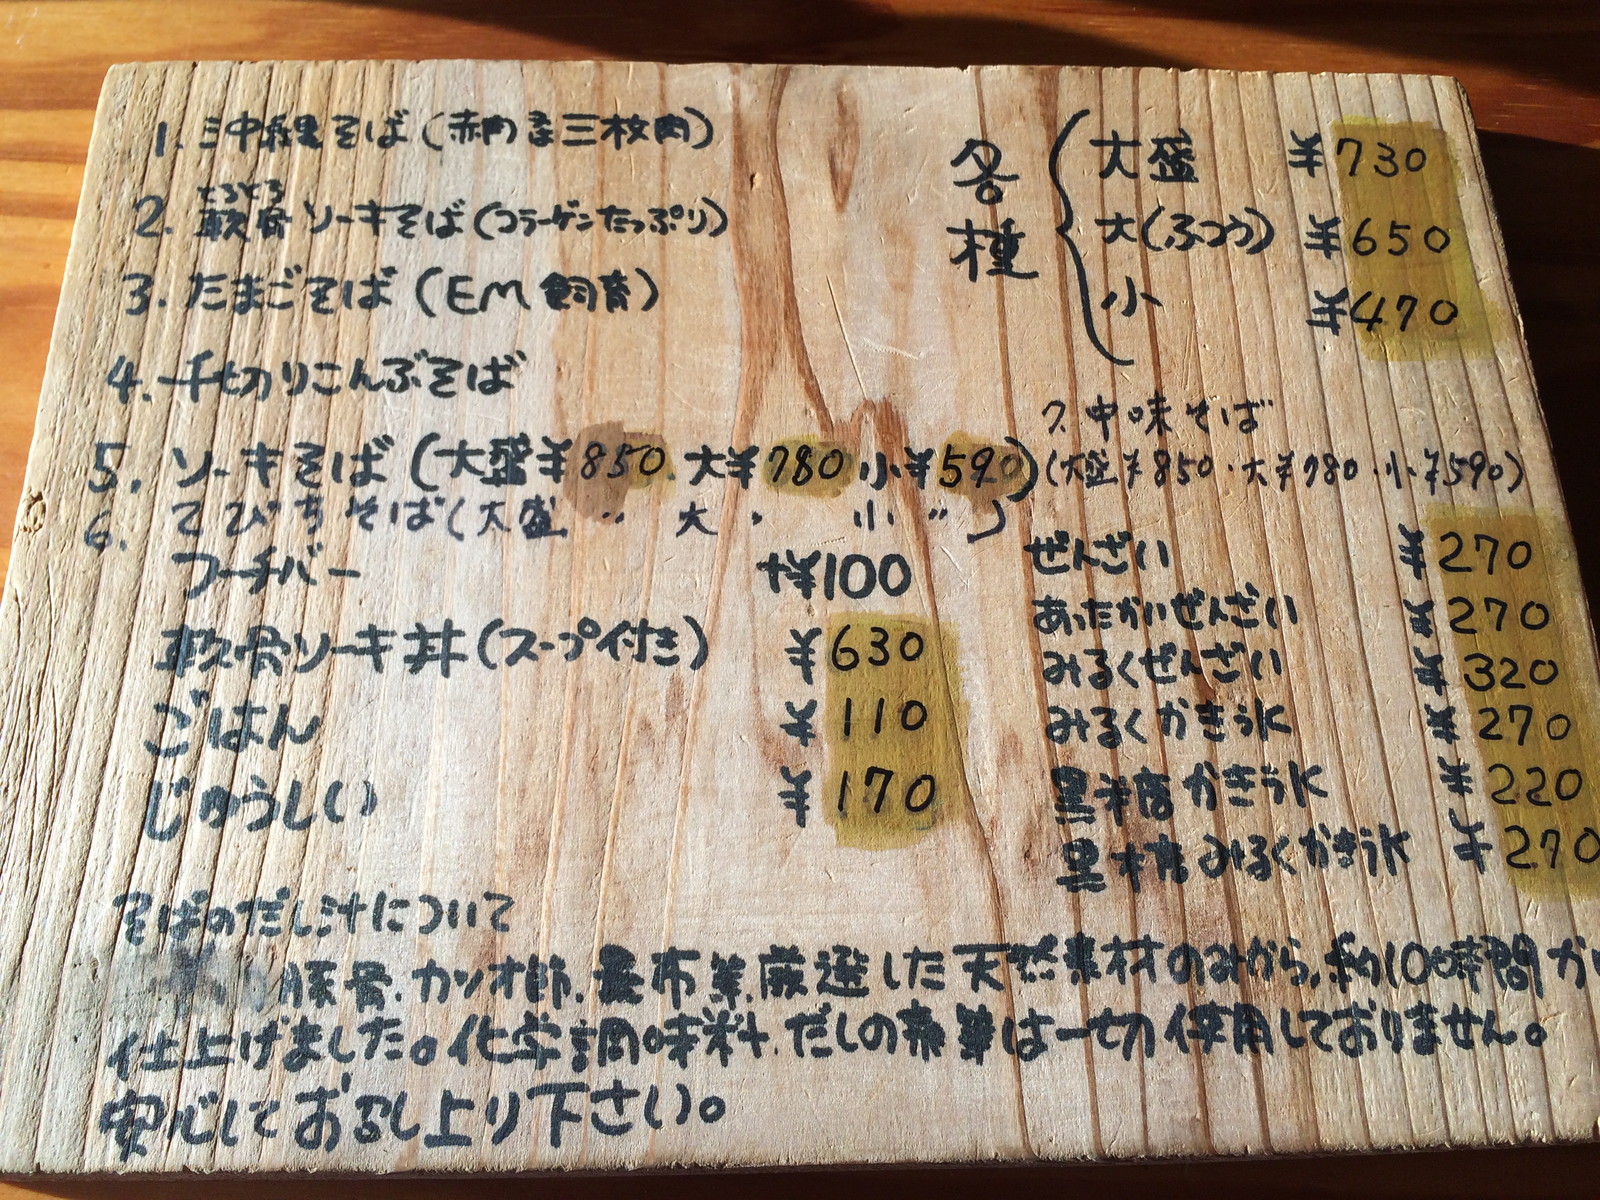 1. 沖縄そば(赤肉又は三枚肉)
とろとろ
2. 軟骨ソーキそば(コラーゲンたっぷり)
3. たまごそば(EM飼育)
4. 千切りこんぶそば
各種
大盛 ¥730
大(ふつう) ¥650
小 ¥470
5. ソーキそば(大盛¥850.大¥780 小¥590)
6. てびちそば(大盛 〃 大 〃 小 〃)
7. 中味そば
(大盛¥850・大¥780・小¥590)
フーチバー +¥100
軟骨ソーキ丼(スープ付き) ¥630
ごはん ¥110
じゅうしい ¥170
ぜんざい ¥270
あったかいぜんざい ¥270
みるくぜんざい ¥320
みるくかき氷 ¥270
黒糖かき氷 ¥220
黒糖みるくかき氷 ¥270
そばのだし汁について
豚骨.カツオ節.昆布等.厳選した天然素材のみから,約10時間か
仕上げました。化学調味料.だしの素等は一切使用しておりません。
安心しておめし上り下さい。